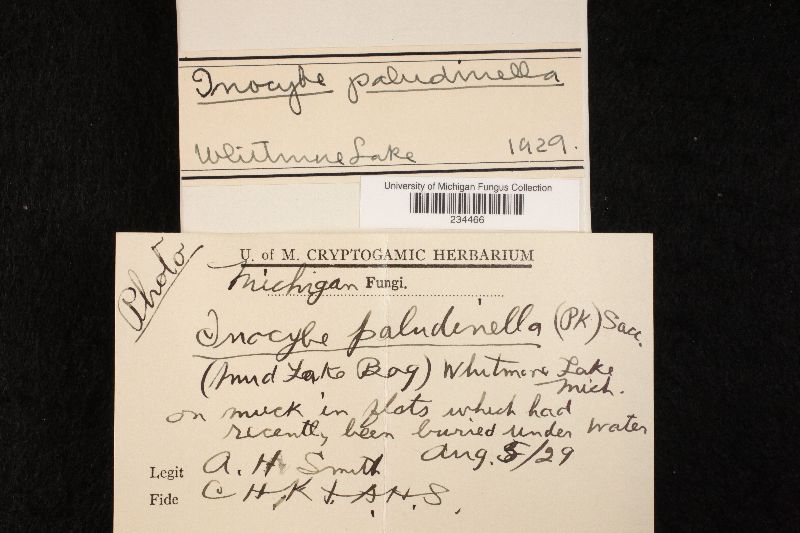 Inocybe paludinella
Whitmore Lake 1929.
University of Michigan Fungus Collection
234466
Photo
U. of M. CRYPTOGAMIC HERBARIUM
Michigan Fungi.
Inocybe paludinella (Pk) Sacc.
(Mud Lake Bog) Whitmore Lake
Mich.
on muck in flats which had
recently been buried under water
Aug. 5/29
Legit A. H. Smith
Fide C.H.K & A.H.S.